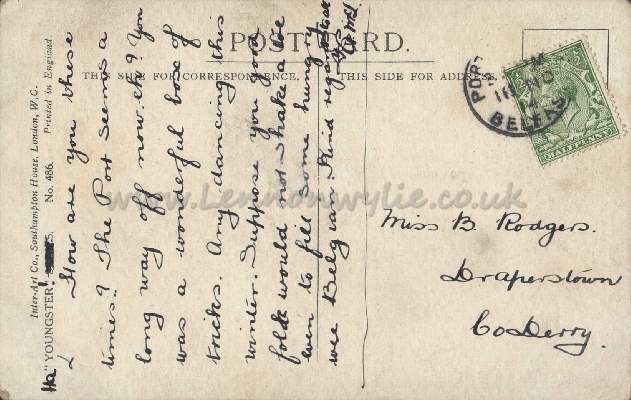 POST CARD.
THIS SPACE FOR CORRESPONDENCE.
THIS SIDE FOR ADDRESS.
Inter-Art Co., Southampton House, London, W.C.
"YOUNGSTER" No. 486. Printed in England
How are you these
times? The Port seems a
long way off now. eh? You
was a wonderful box of
tricks. Any dancing this
winter. Suppose you good
folk would not shake a
even to fill some hungry
wee Belgian. Kind regards to all
PORT
NO
14
BELFAST
HALFPENNY
Miss B. Rodgers.
Draperstown
Co Derry.
www.Lennonwylie.co.uk